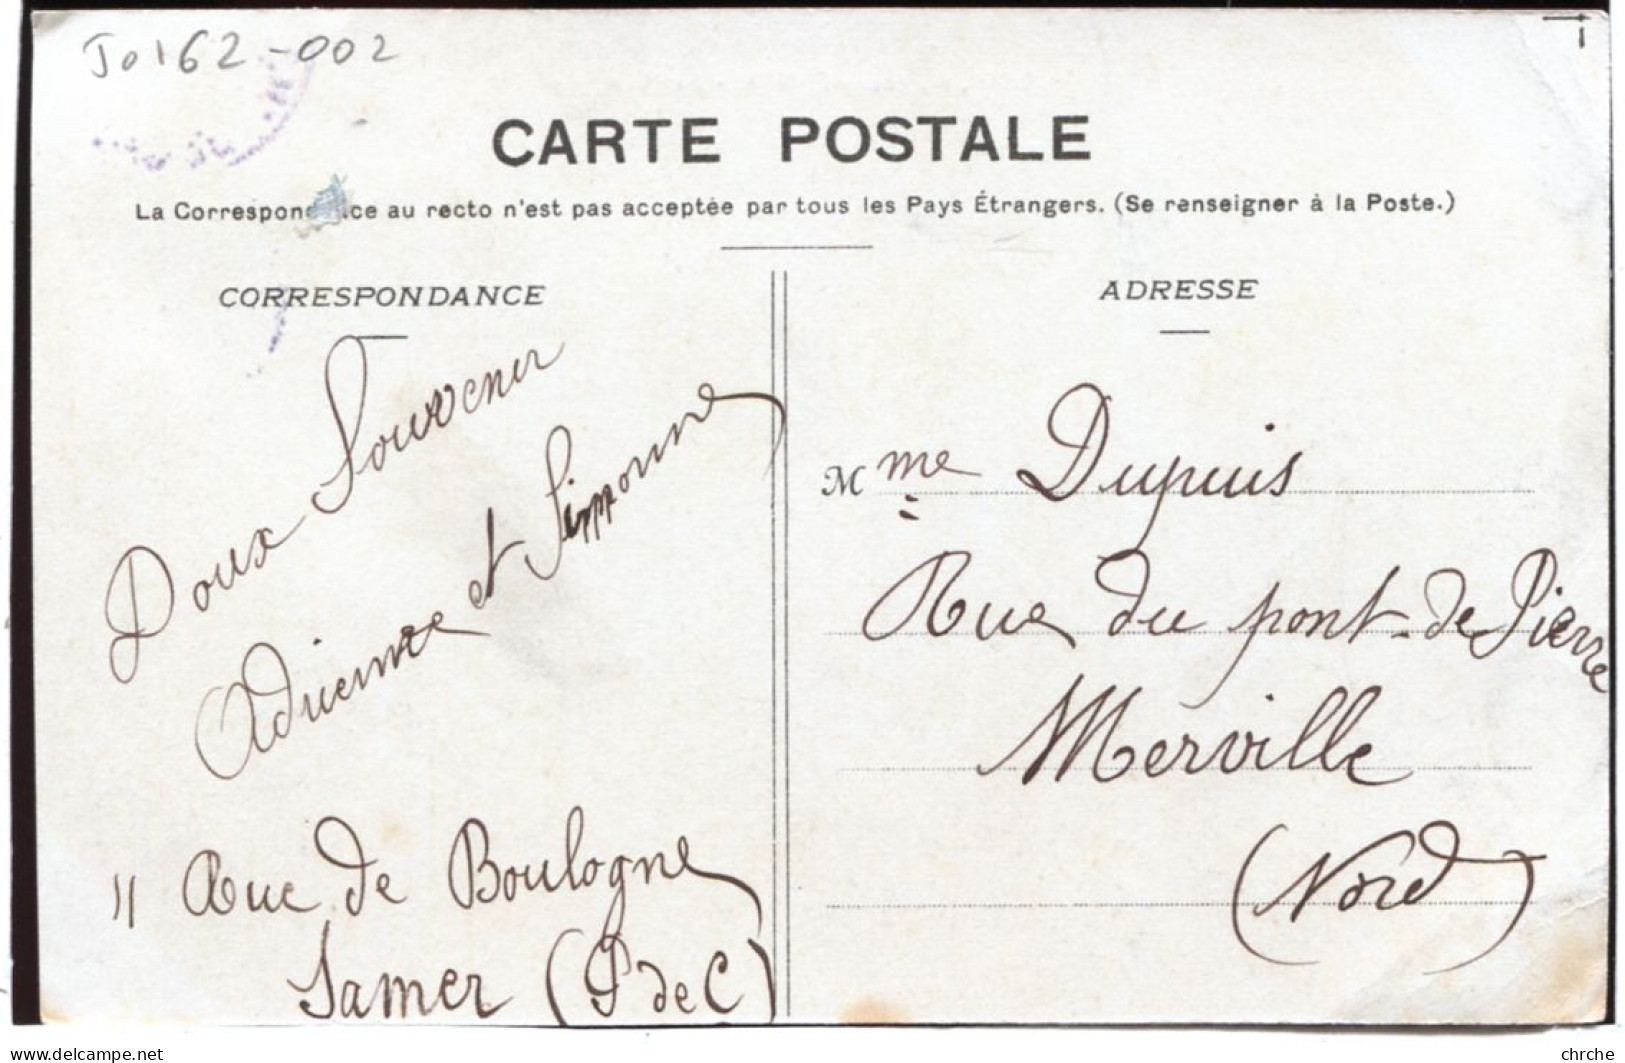 Jo162-002
CARTE POSTALE
La Correspondance au recto n'est pas acceptée par tous les Pays Étrangers. (Se renseigner à la Poste.)
CORRESPONDANCE
Doux Souvenir
Adrienne et Simonne
11 Rue de Boulogne
Samer (P de C)
ADRESSE
Mme Dupuis
Rue du pont-de Pierre
Merville
(Nord)
www.delcampe.net
chrche